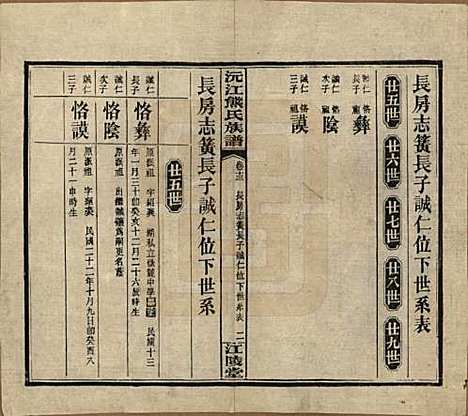 長房志簧長子誠仁位下世系表
廿五世 廿六世 廿七世 廿八世 廿九世
誠仁長子 恪祖 彝
誠仁次子 恪祖 陰
誠仁三子 恪祖 謨
沅江熊氏族譜
長房志簧長子誠仁位下世系表 二
江陵堂
長房志簧長子誠仁位下世系
廿五世
誠仁長子
恪彝
民國十三
年一月三十日即癸亥十二月二十六戌時生
誠仁次子
恪陰
誠仁三子
恪謨
民國二十二年十月九日即癸酉八
月二十一申時生